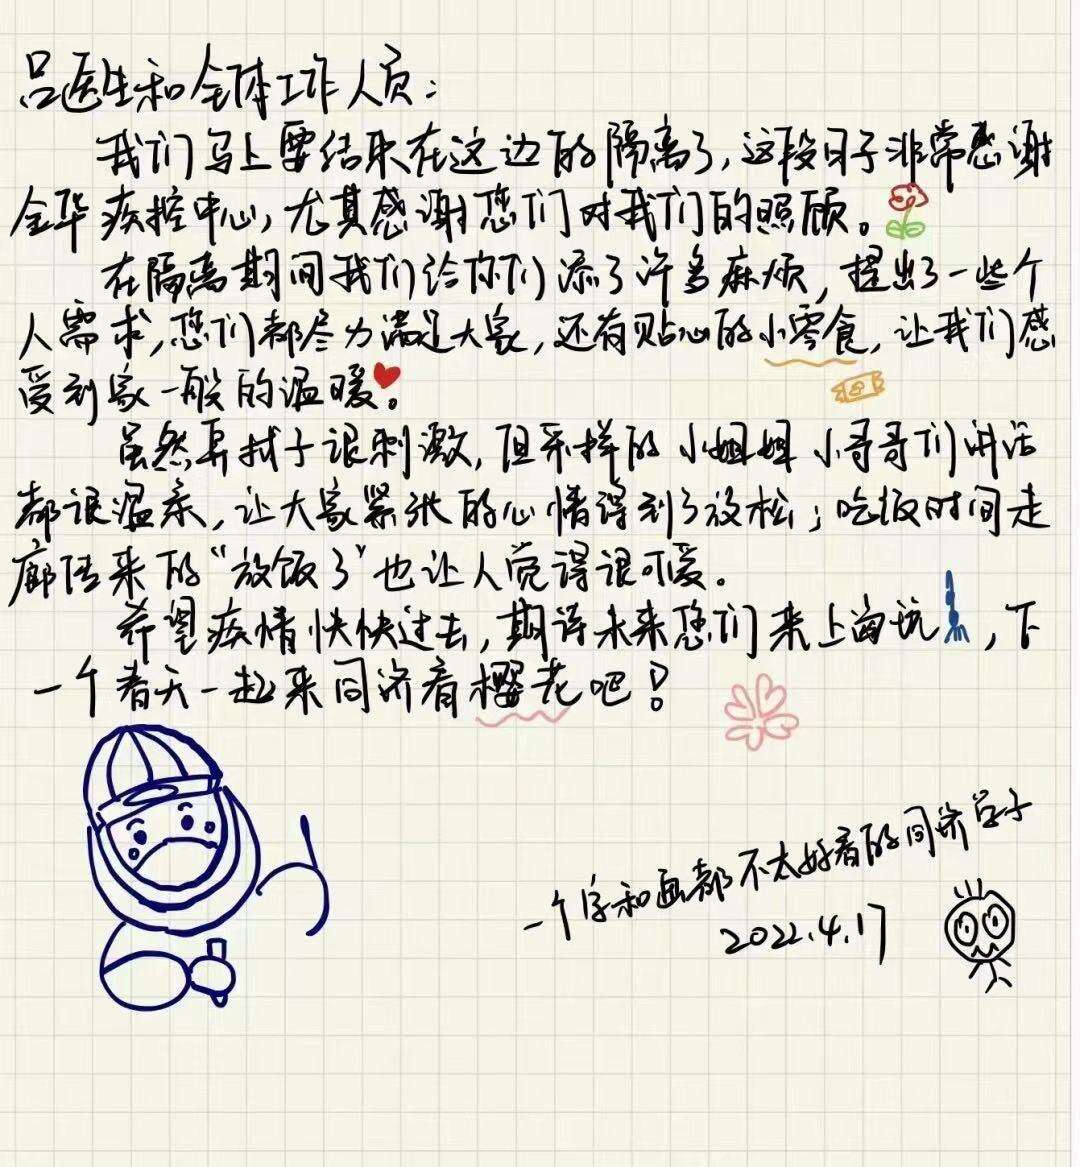 吕医生和全体工作人员：
我们马上要结束在这边的隔离了，这段日子非常感谢
金华疾控中心，尤其感谢您们对我们的照顾。
在隔离期间我们给你们添了许多麻烦，提出了一些个
人需求，您们都尽力满足大家，还有贴心的小零食，让我们感
受到家一般的温暖。
虽然弄拭子很刺激，但采样的小姐姐小哥哥们讲话
都很温柔，让大家紧张的心情得到了放松；吃饭时间走
廊传来的“放饭了”也让人觉得很可爱。
希望疫情快快过去，期待未来您们来上海玩，下
一个春天一起来同济看樱花吧！
一个字和画都不太好看的同济学子
2022.4.17